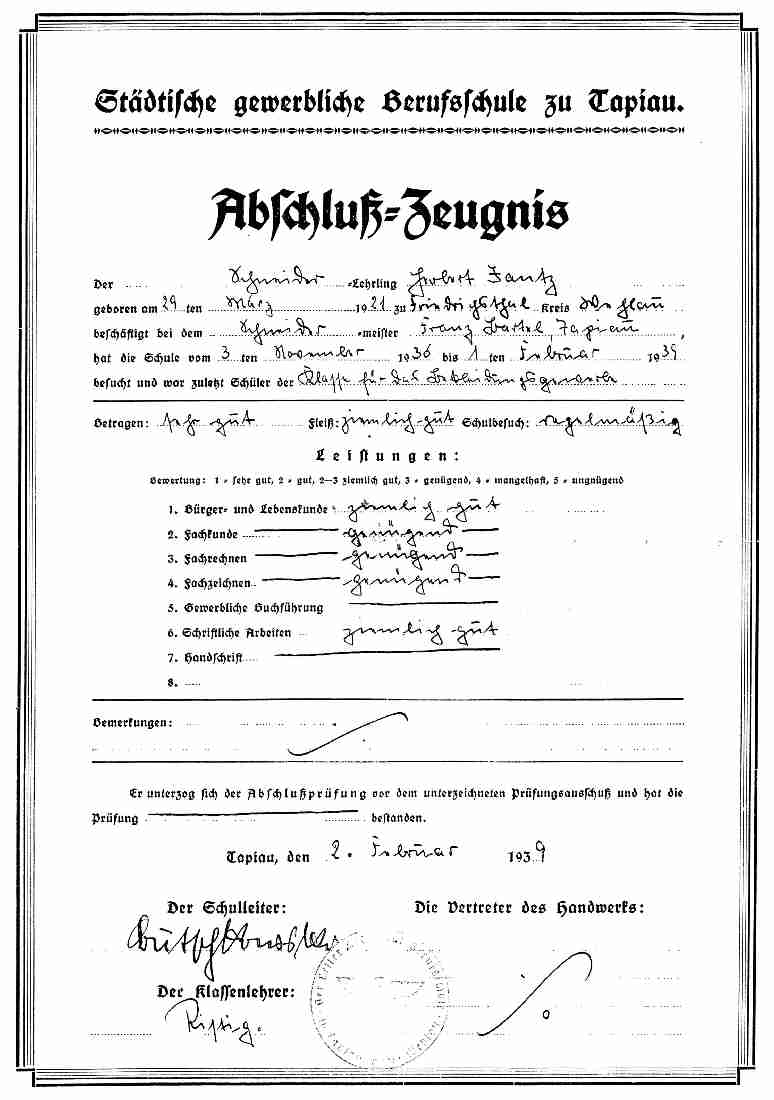 Städtische gewerbliche Berufsschule zu Tapiau.
Abschluß-Zeugnis
Der Schneider -Lehrling Herbert Zantz
geboren am 29 ten März 1921 zu Friedrichsthal Kreis Wehlau
beschäftigt bei dem Schneider -meister Franz Bartel, Tapiau,
hat die Schule vom 3 ten November 1936 bis 1 ten Februar 1939
besucht und war zuletzt Schüler der Klasse für das Bekleidungsgewerbe
Betragen: sehr gut Fleiß: ziemlich gut Schulbesuch: regelmäßig
Leistungen:
Bewertung: 1 = sehr gut, 2 = gut, 2—3 ziemlich gut, 3 = genügend, 4 = mangelhaft, 5 = ungnügend
1. Bürger- und Lebenskunde ziemlich gut
2. Fachkunde genügend
3. Fachrechnen genügend
4. Fachzeichnen genügend
5. Gewerbliche Buchführung
6. Schriftliche Arbeiten ziemlich gut
7. Handschrift
8.
Bemerkungen:
Er unterzog sich der Abschlußprüfung vor dem unterzeichneten Prüfungsausschuß und hat die
Prüfung bestanden.
Tapiau, den 2. Februar 1939
Der Schulleiter: Die Vertreter des Handwerks:
Der Klassenlehrer: